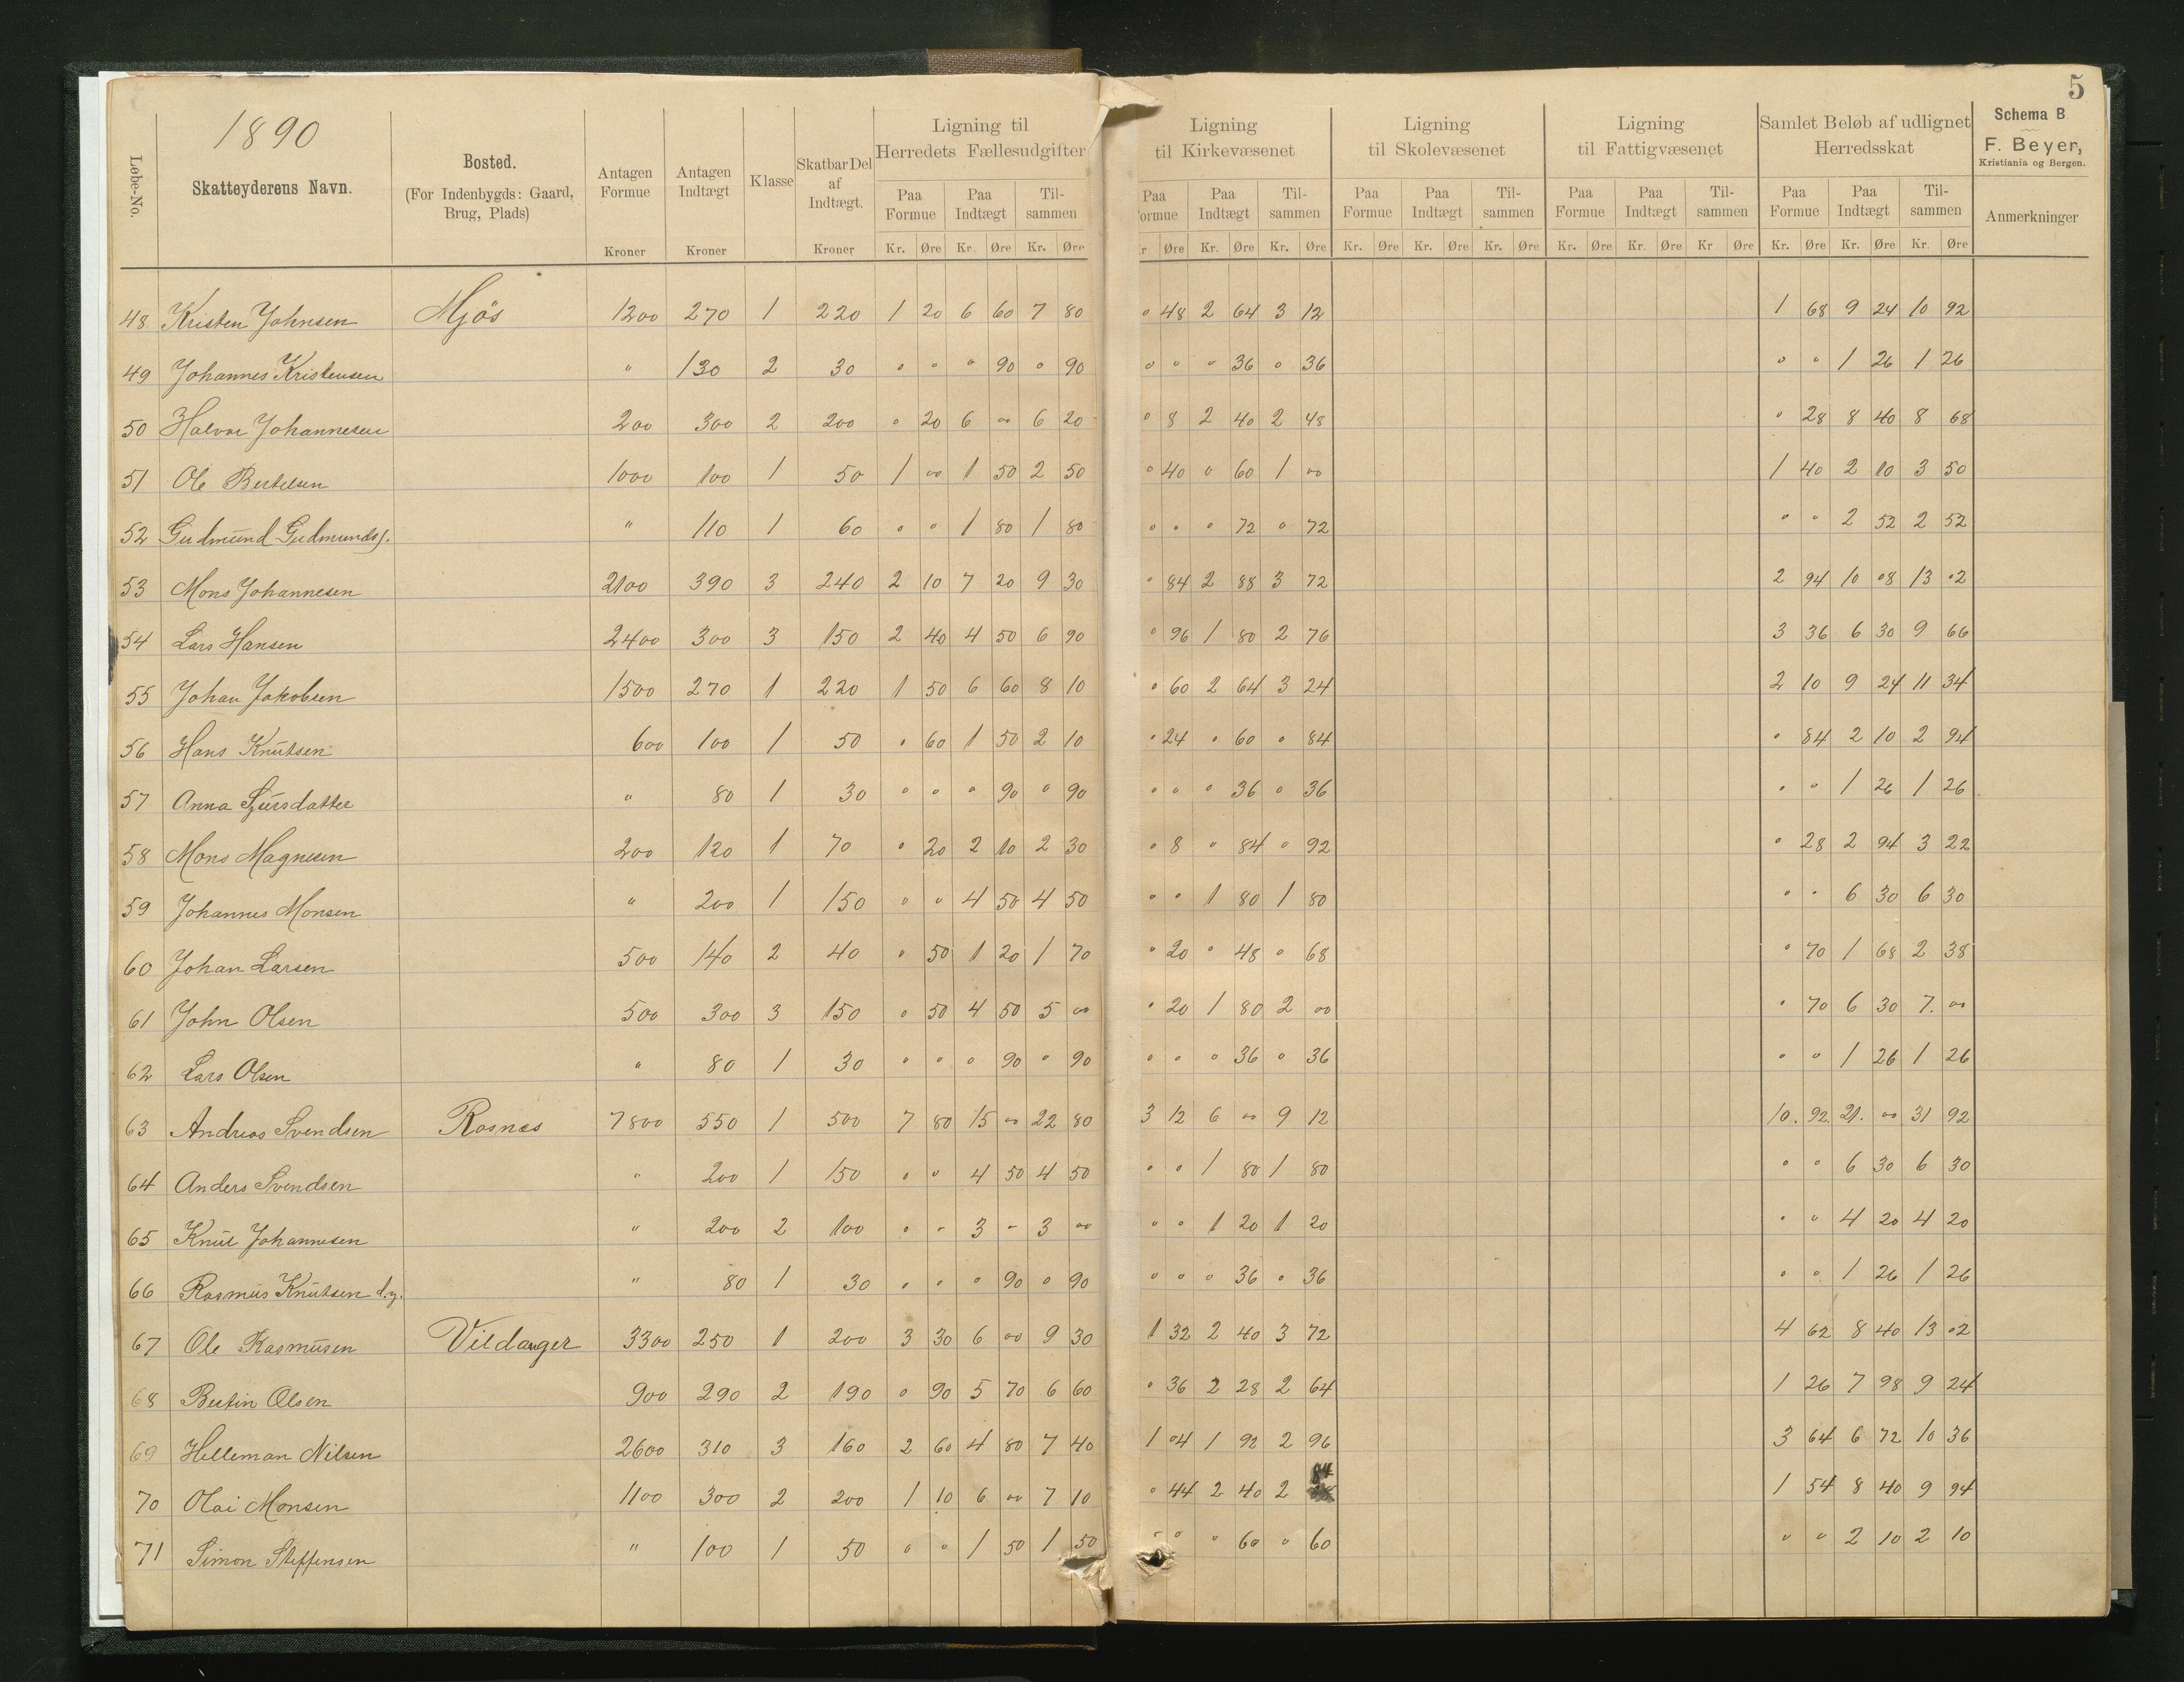 5
1890
Løbe-No.
Skatteyderens Navn.
Bosted.
(For Indenbygds: Gaard, Brug, Plads)
Antagen Formue
Kroner
Antagen Indtægt
Kroner
Klasse
Skatbar Del af Indtægt.
Kroner
Ligning til Herredets Fællesudgifter
Paa Formue Paa Indtægt Tilsammen
Kr. Øre Kr. Øre Kr. Øre
Ligning til Kirkevæsenet
Paa Formue Paa Indtægt Tilsammen
Kr Øre Kr. Øre Kr. Øre
Ligning til Skolevæsenet
Paa Formue Paa Indtægt Tilsammen
Kr. Øre Kr. Øre Kr. Øre
Ligning til Fattigvæsenet
Paa Formue Paa Indtægt Tilsammen
Kr. Øre Kr. Øre Kr Øre
Samlet Beløb af udlignet Herredsskat
Paa Formue Paa Indtægt Tilsammen
Kr. Øre Kr. Øre Kr. Øre
Schema B
F. Beyer,
Kristiania og Bergen.
Anmerkninger
48 Kristen Johnsen Mjös 1200 270 1 220 1 20 6 60 7 80 " 48 2 64 3 12 1 68 9 24 10 92
49 Johannes Kristensen " 130 2 30 " " " 90 " 90 " " " 36 " 36 " " 1 26 1 26
50 Halvor Johannesen 200 300 2 200 " 20 6 00 6 20 " 8 2 40 2 48 " 28 8 40 8 68
51 Ole Bertelsen 1000 100 1 50 1 00 1 50 2 50 " 40 " 60 1 00 1 40 2 10 3 50
52 Gudmund Gudmunds. " 110 1 60 " " 1 80 1 80 " " " 72 " 72 " " 2 52 2 52
53 Mons Johannesen 2100 390 3 240 2 10 7 20 9 30 " 84 2 88 3 72 2 94 10 08 13 02
54 Lars Hansen 2400 300 3 150 2 40 4 50 6 90 " 96 1 80 2 76 3 36 6 30 9 66
55 Johan Jakobsen 1500 270 1 220 1 50 6 60 8 10 " 60 2 64 3 24 2 10 9 24 11 34
56 Hans Knutsen 600 100 1 50 " 60 1 50 2 10 " 24 " 60 " 84 " 84 2 10 2 94
57 Anna Sjursdatter " 80 1 30 " " " 90 " 90 " " " 36 " 36 " " 1 26 1 26
58 Mons Magnesen 200 120 1 70 " 20 2 10 2 30 " 8 " 84 " 92 " 28 2 94 3 22
59 Johannes Monsen " 200 1 150 " " 4 50 4 50 " " 1 80 1 80 " " 6 30 6 30
60 Johan Larsen 500 140 2 40 " 50 1 20 1 70 " 20 " 48 " 68 " 70 1 68 2 38
61 John Olsen 500 300 3 150 " 50 4 50 5 00 " 20 1 80 2 00 " 70 6 30 7. 00
62 Lars Olsen " 80 1 30 " " " 90 " 90 " " " 36 " 36 " " 1 26 1 26
63 Andreas Svendsen Rosnes 7800 550 1 500 7 80 15 00 22 80 3 12 6 00 9 12 10. 92. 21. 00 31 92
64 Anders Svendsen " 200 1 150 " " 4 50 4 50 " " 1 80 1 80 " " 6 30 6 30
65 Knut Johannesen " 200 2 100 " - 3 - 3 00 " " 1 20 1 20 " " 4 20 4 20
66 Rasmus Knutsen d.y. " 80 1 30 " " " 90 " 90 " " " 36 " 36 " " 1 26 1 26
67 Ole Rasmusen Vildanger 3300 250 1 200 3 30 6 00 9 30 1 32 2 40 3 72 4 62 8 40 13 02
68 Bertin Olsen 900 290 2 190 " 90 5 70 6 60 " 36 2 28 2 64 1 26 7 98 9 24
69 Helleman Nilsen 2600 310 3 160 2 60 4 80 7 40 1 04 1 92 2 96 3 64 6 72 10 36
70 Olai Monsen 1100 300 2 200 1 10 6 00 7 10 " 44 2 40 2 84 1 54 8 40 9 94
71 Simon Steffensen " 100 1 50 " " 1 50 1 50 - " " 60 " 60 " " 2 10 2 10